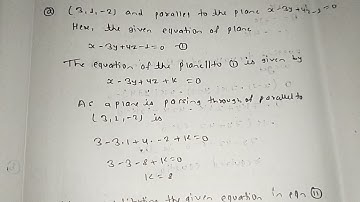 (a) (3,1,-2) and parallel to the plane x-3y+4z-2=0
Here, the given equation of plane
x-3y+4z-2=0 - ①
The equation of the plane ll to ① is given by
x-3y+4z+k=0
As a plane is passing through of parallel to
(3,1,-2) is
3-3.1+4.-2+k=0
3-3-8+k=0
k=8
the given equation in eqn ⑪